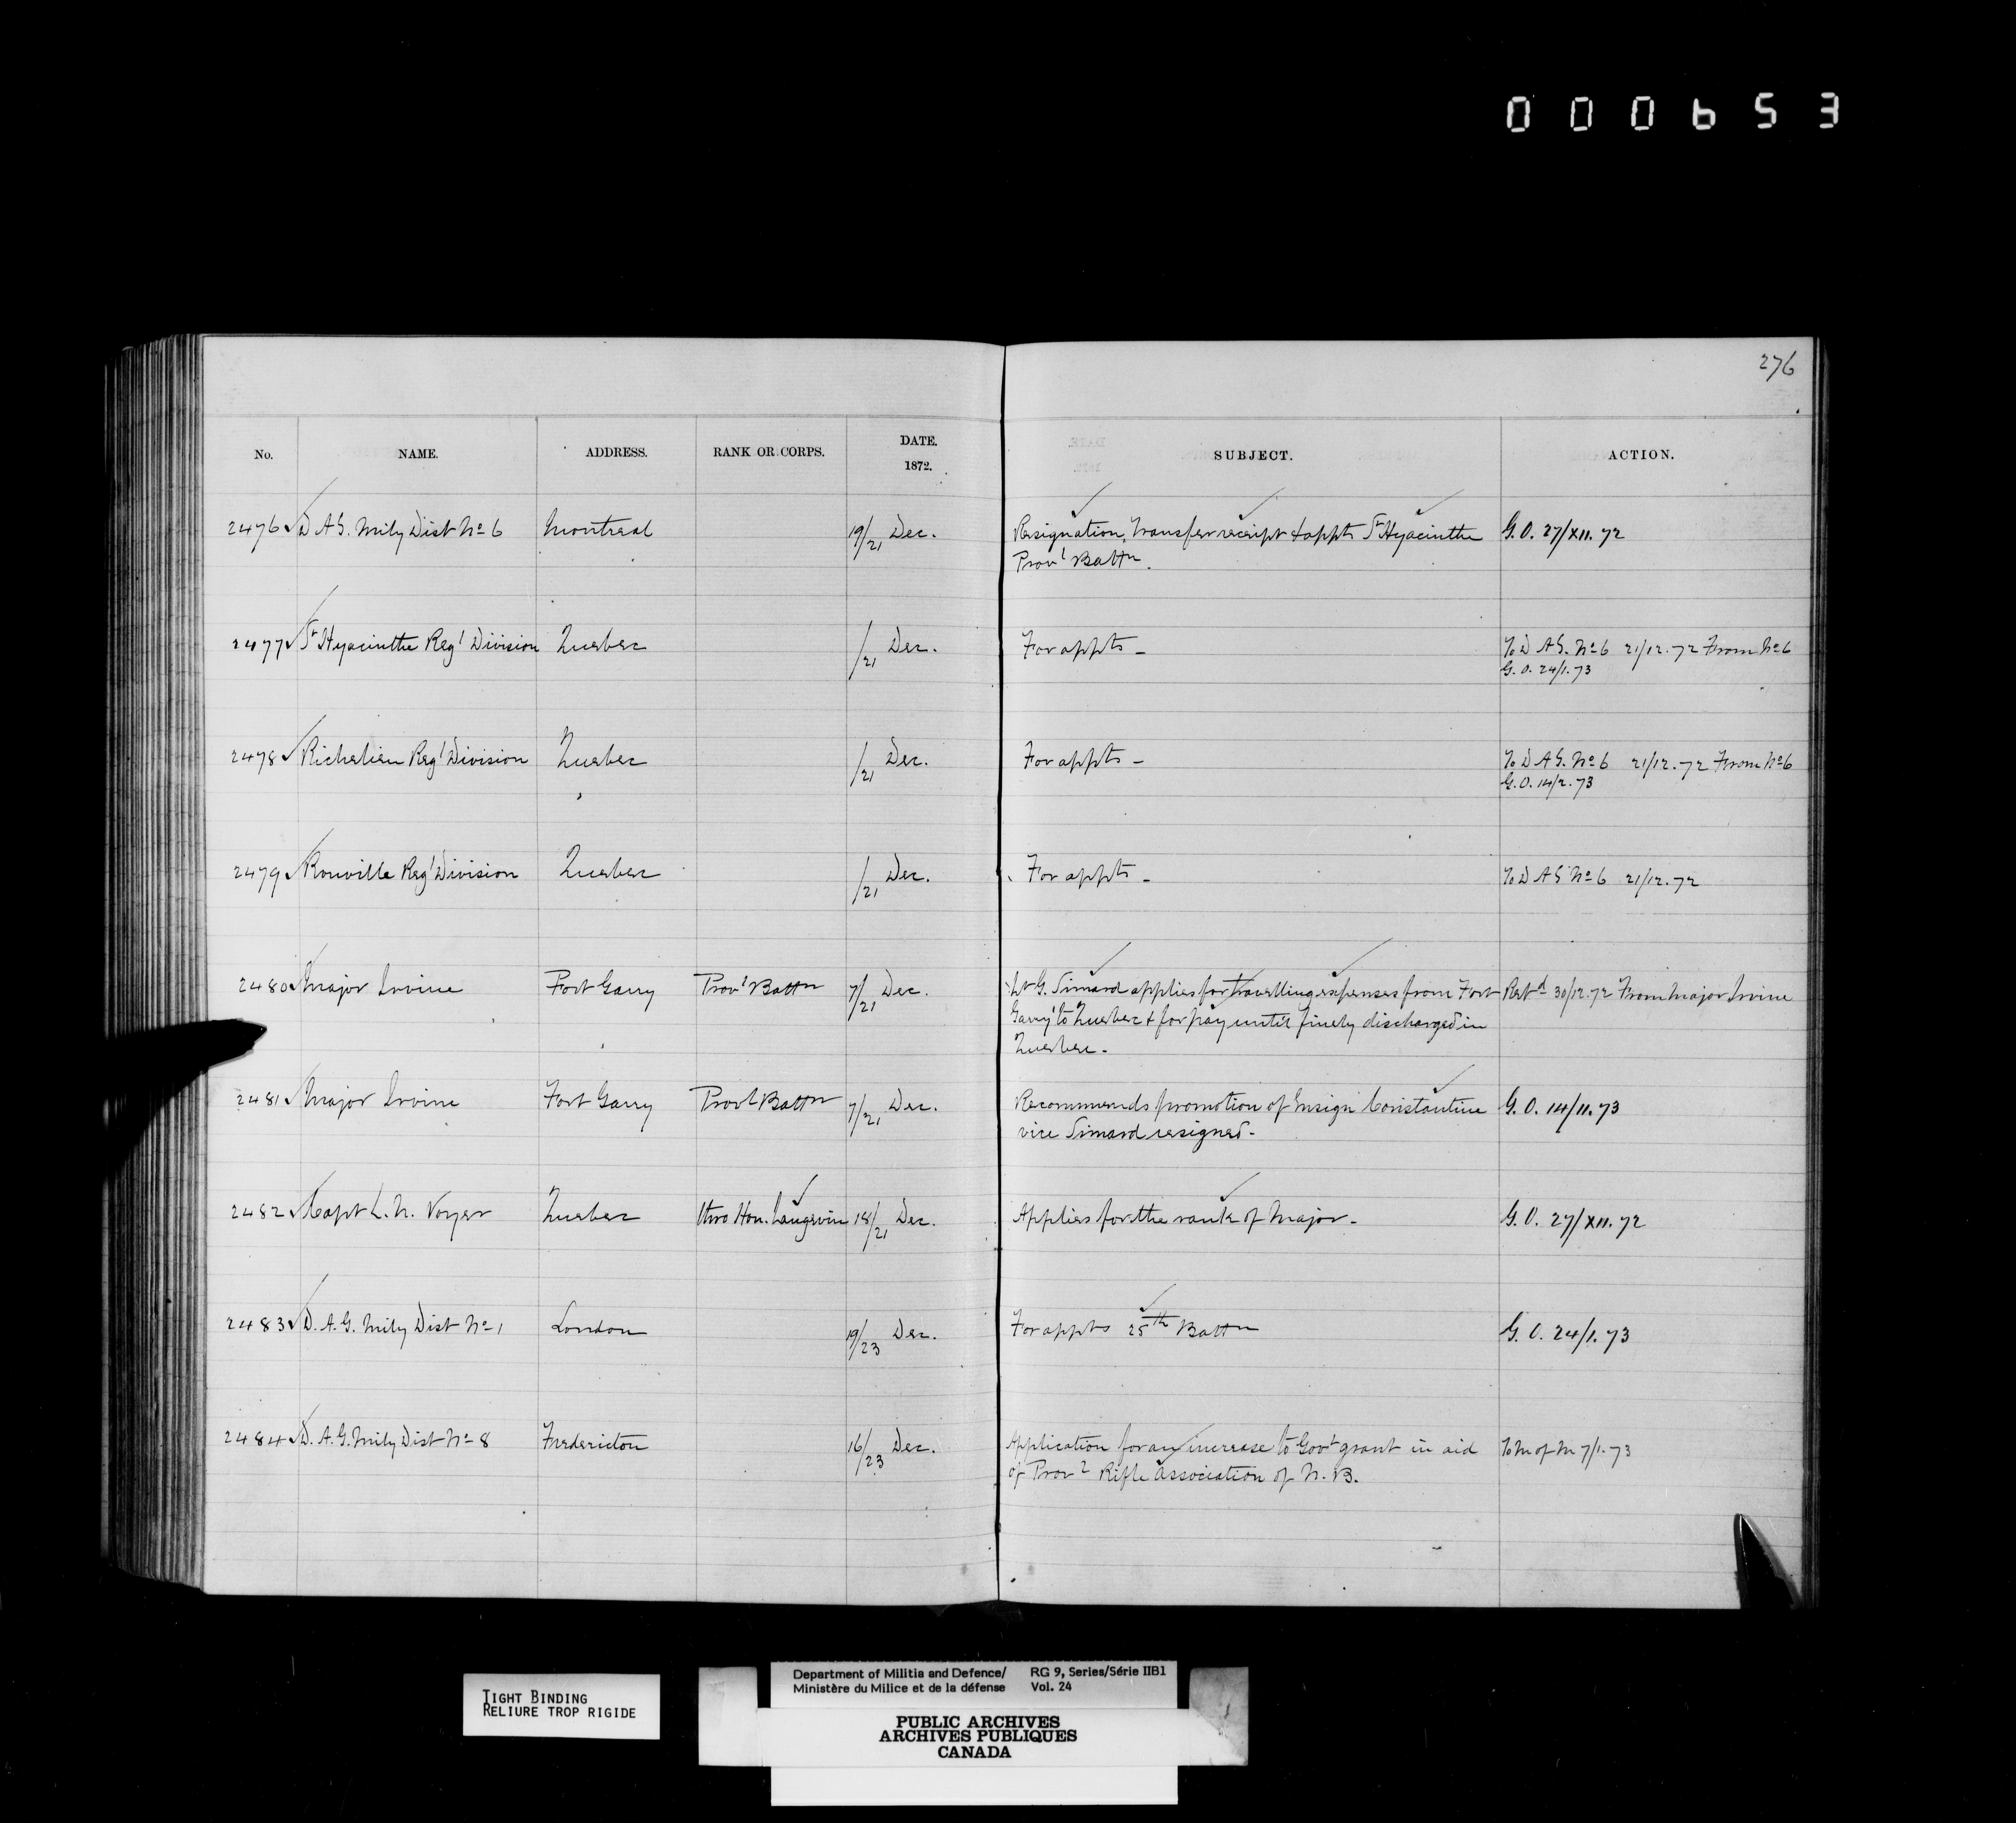 000653
276
No. NAME. ADDRESS. RANK OR CORPS. DATE. 1872. SUBJECT. ACTION.
2476 D A G. Mily Dist No 6 Montreal 19/21 Dec. Resignation, transfer receipt & appts St Hyacinthe G. O. 27/XII. 72
Provl Battn.
2477 St Hyacinthe Regl Division Quebec /21 Dec. For appts - To D A G. No 6 21/12. 72 From No 6
G. O. 24/1. 73
2478 Richelieu Regl Division Quebec /21 Dec. For appts - To D A G. No 6 21/12. 72 From No 6
G. O. 14/2. 73
2479 Rouville Regl Division Quebec /21 Dec. For appts - To D A G No 6 21/12. 72
2480 Major Irvine Fort Garry Provl Battn 7/21 Dec. Lt G. Simard applies for travelling expenses from Fort Retd 30/12. 72 From Major Irvine
Garry to Quebec & for pay until finely discharged in
Quebec -
2481 Major Irvine Fort Garry Provl Battn 7/21 Dec. Recommends promotion of Ensign Constantine G. O. 14/11. 73
vice Simard resigned -
2482 Capt L. N. Voyer Quebec thro Hon. Langevin 18/21 Dec. Applies for the rank of Major - G. O. 27/XII. 72
2483 D. A. G. Mily Dist No 1 London 19/23 Dec. For appts 25th Battn G. O. 24/1. 73
2484 D. A. G. Mily Dist No 8 Fredericton 16/23 Dec. Application for an increase to Govt grant in aid To M of M 7/1. 73
of Provl Rifle Association of N. B.
TIGHT BINDING
RELIURE TROP RIGIDE
Department of Militia and Defence/ RG 9, Series/Série IIB1
Ministère du Milice et de la défense Vol. 24
PUBLIC ARCHIVES
ARCHIVES PUBLIQUES
CANADA